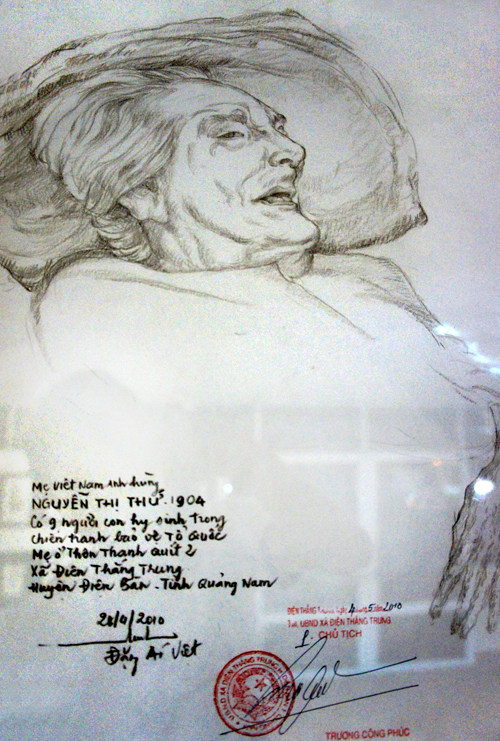 Mẹ Việt Nam anh hùng
NGUYỄN THỊ THỨ. 1904
Có 9 người con hy sinh trong
chiến tranh bảo vệ Tổ Quốc
Mẹ ở Thôn Thanh quít 2
Xã Điện Thắng Trung
Huyện Điện Bàn - Tỉnh Quảng Nam
28/4/2010
Đặng Ái Việt
ĐIỆN THẮNG ngày 4 tháng 5 năm 2010
TM. UBND XÃ ĐIỆN THẮNG TRUNG
CHỦ TỊCH
U.B.N.D XÃ ĐIỆN THẮNG TRUNG
TRƯƠNG CÔNG PHÚC